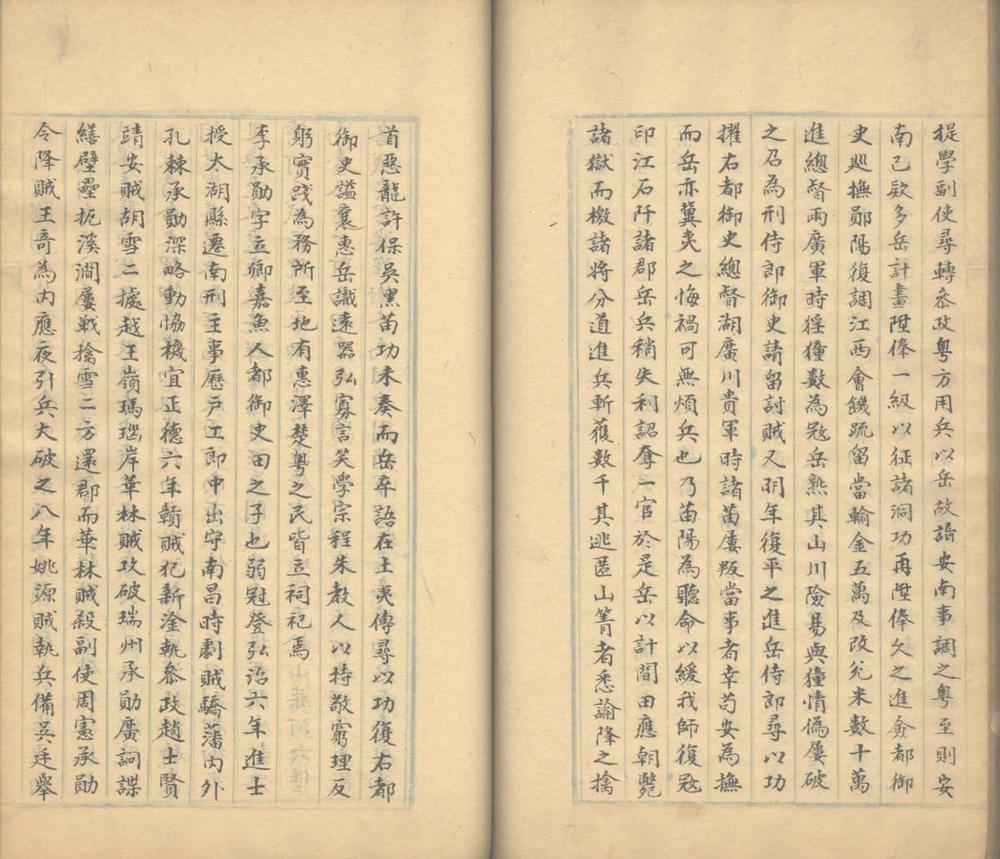 提學副使尋轉叅政粤方用兵以岳故諳安南事調之粤至則安
南已欵多岳計畫陞俸一級以征諸洞功再陞俸久之進僉都御
史廵撫鄖陽復調江西會饑疏留當輸金五萬及改兊米數十萬
進總督兩廣軍時猺獞數為冦岳熟其山川險易與獞情偽屢破
之召為刑侍郎御史請留討賊又明年復平之進岳侍郎尋以功
擢右都御史總督湖廣川貴軍時諸苗屢叛當事者幸茍安為撫
而岳亦冀夷之悔禍可無煩兵也乃苗陽為聽命以緩我師復冦
印江石阡諸郡岳兵稍失利詔奪一官於是岳以計間田應朝斃
諸獄而檄諸將分道進兵斬獲數千其逃匿山箐者悉諭降之擒
首惡龍許保吳黑苗功未奏而岳卒語在土夷傳尋以功復右都
御史謚襄惠岳識遠器弘寡言笑學宗程朱教人以持敬窮理反
躬實踐為務所至地有惠澤楚粤之民皆立祠祀焉
李承勛字立卿嘉魚人都御史田之子也弱冠登弘治六年進士
授太湖縣遷南刑主事歷戶工郎中出守南昌時劇賊驕藩內外
孔棘承勛深略動恊機宜正德六年贛賊犯新淦執叅政趙士賢
靖安賊胡雪二據越王嶺瑪瑙岸華林賊攻破瑞州承勛廣詗諜
繕壁壘扼溪澗屢戰擒雪二方還郡而華林賊殺副使周憲承勛
令降賊王奇為內應夜引兵大破之八年姚源賊執兵備吳廷舉